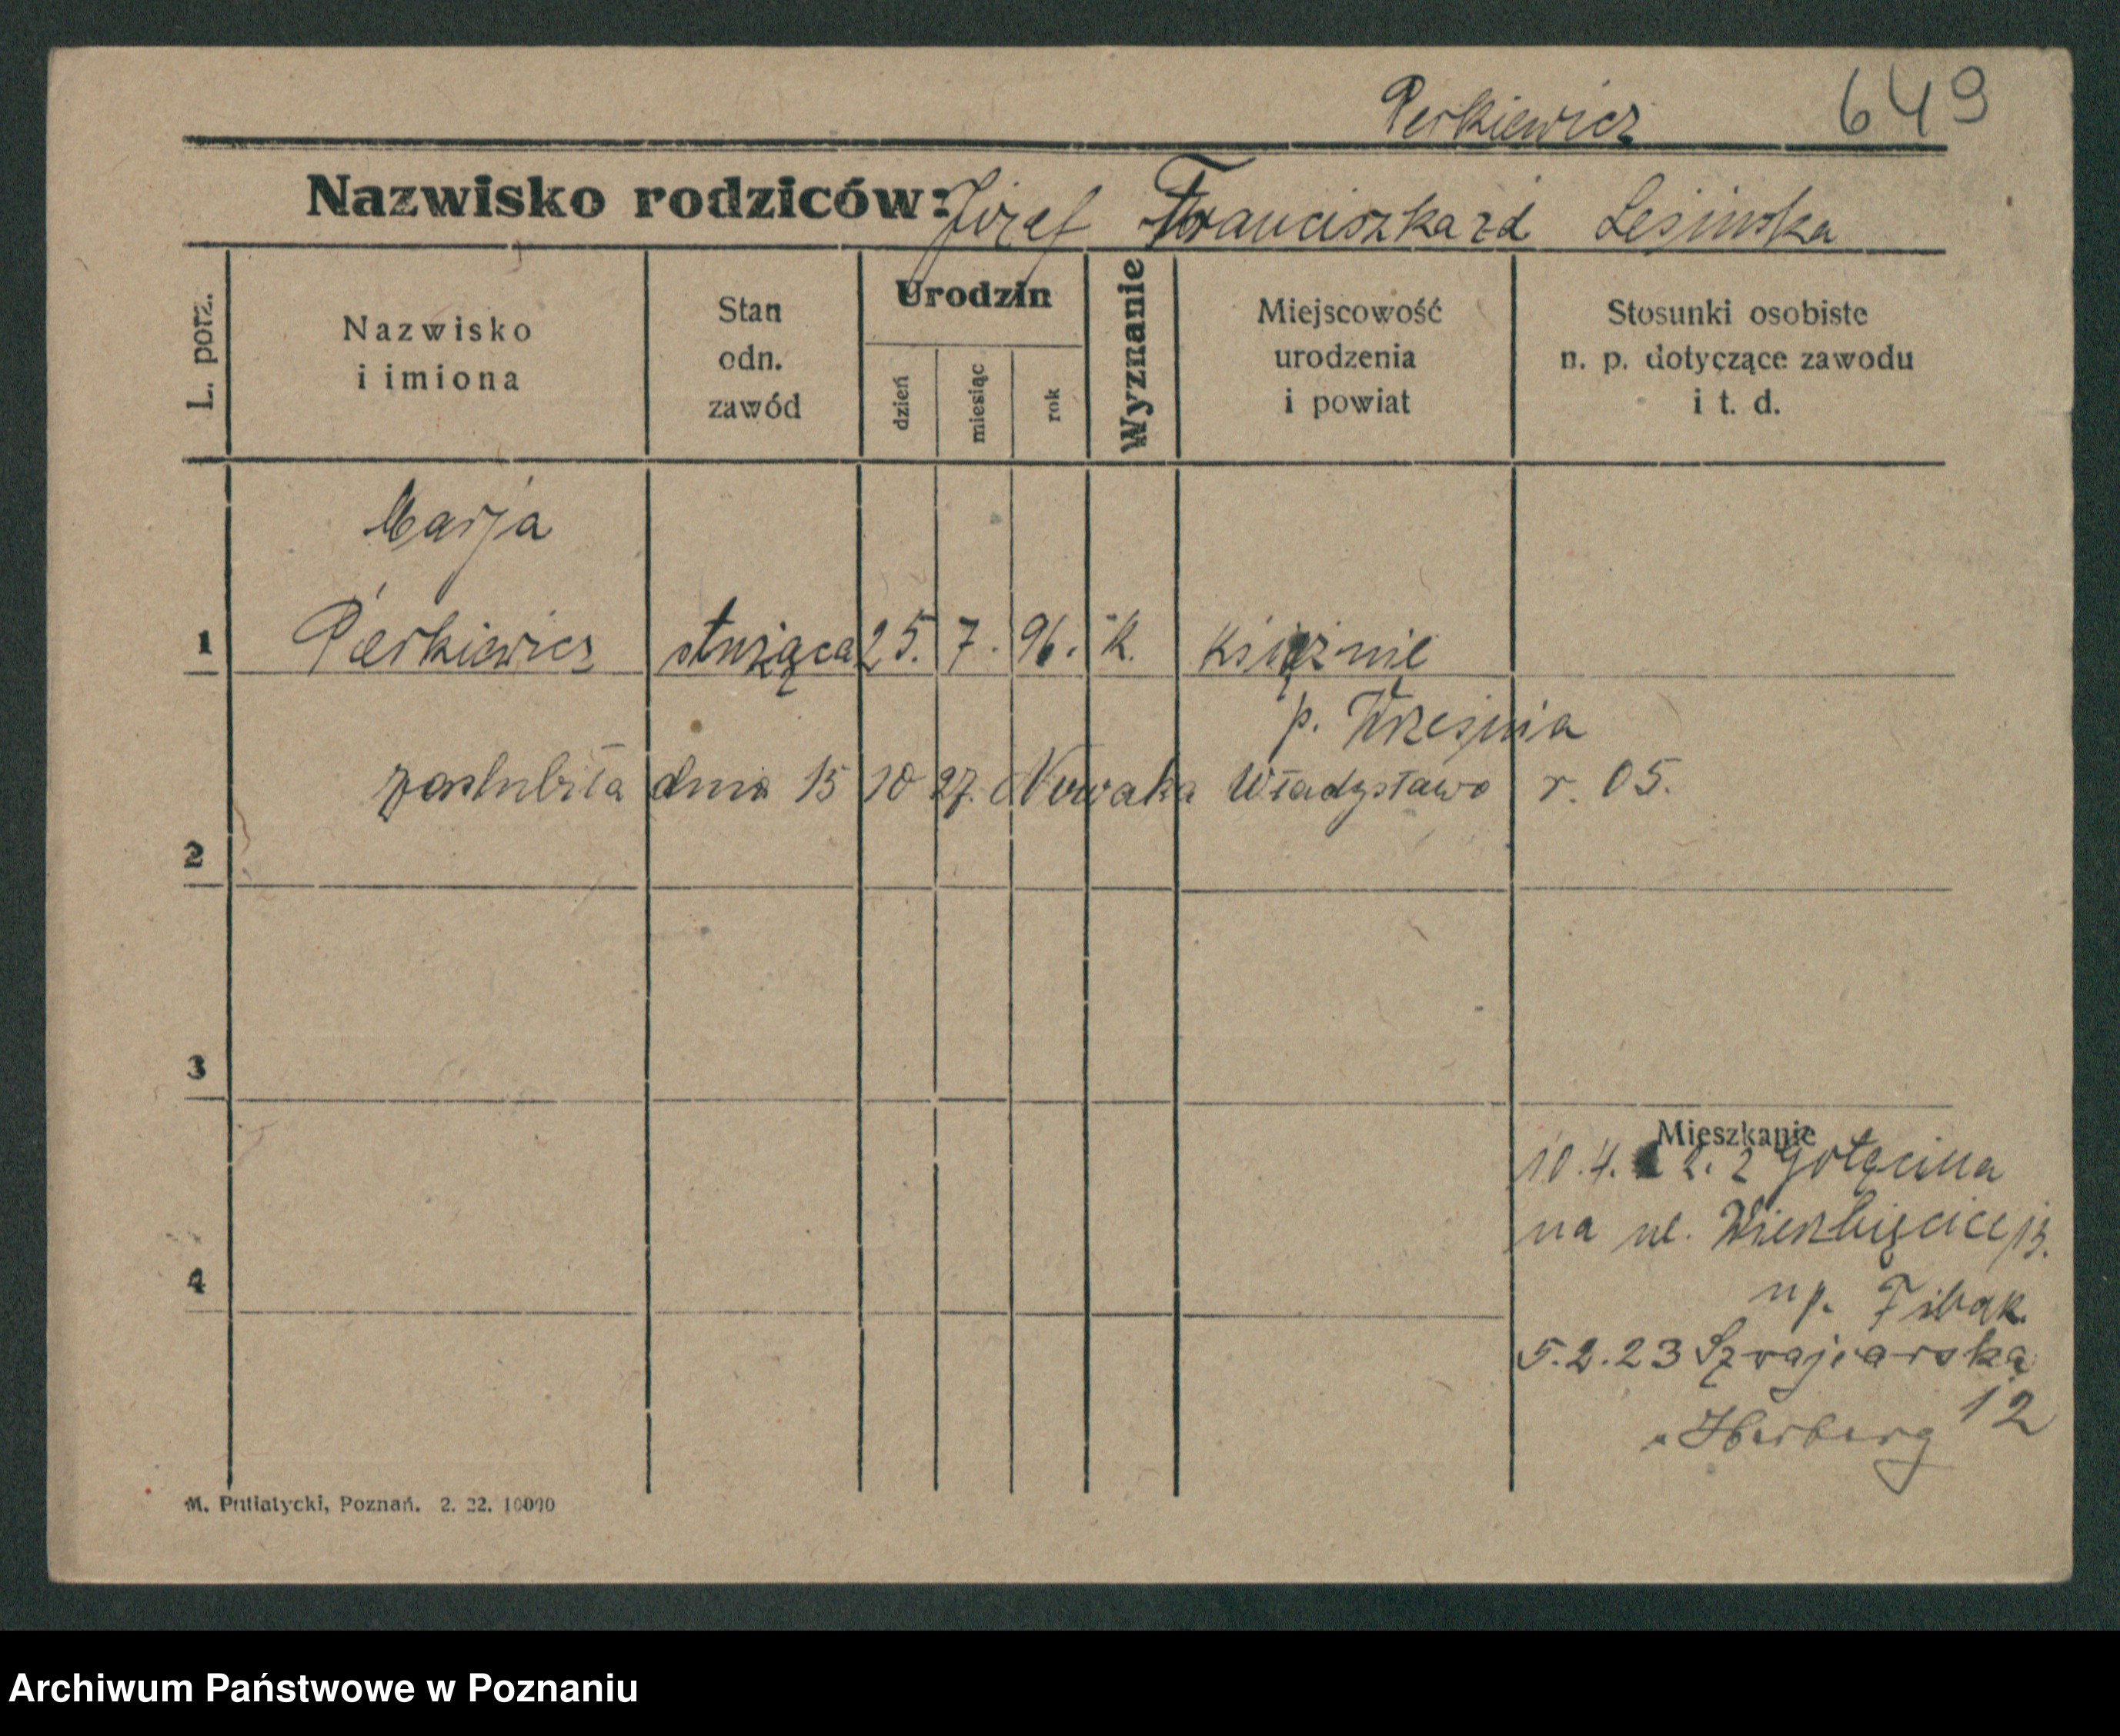 Perkiewicz 649
Nazwisko rodziców: Józef Franciszka zd Lesinska
L. porz.
Nazwisko
i imiona
Stan
odn.
zawód
Urodzin
dzień
miesiąc
rok
Wyznanie
Miejscowość
urodzenia
i powiat
Stosunki osobiste
n. p. dotyczące zawodu
i t. d.
Marja
1 Perkiewicz służąca 25. 7. 96. K.
p. Wrzesnia
zaslubiła dnia 15 10 27. Nowaka Władysława r. 05.
2
3
Mieszkanie
10.4. 2.2 Gołęcina
na ul. Wierzbięcice 13.
4
np. Fibak
5.2.23 Szwajcarska
12
Herberg
M. Putiatycki, Poznań. 2. 22. 10000
Archiwum Państwowe w Poznaniu